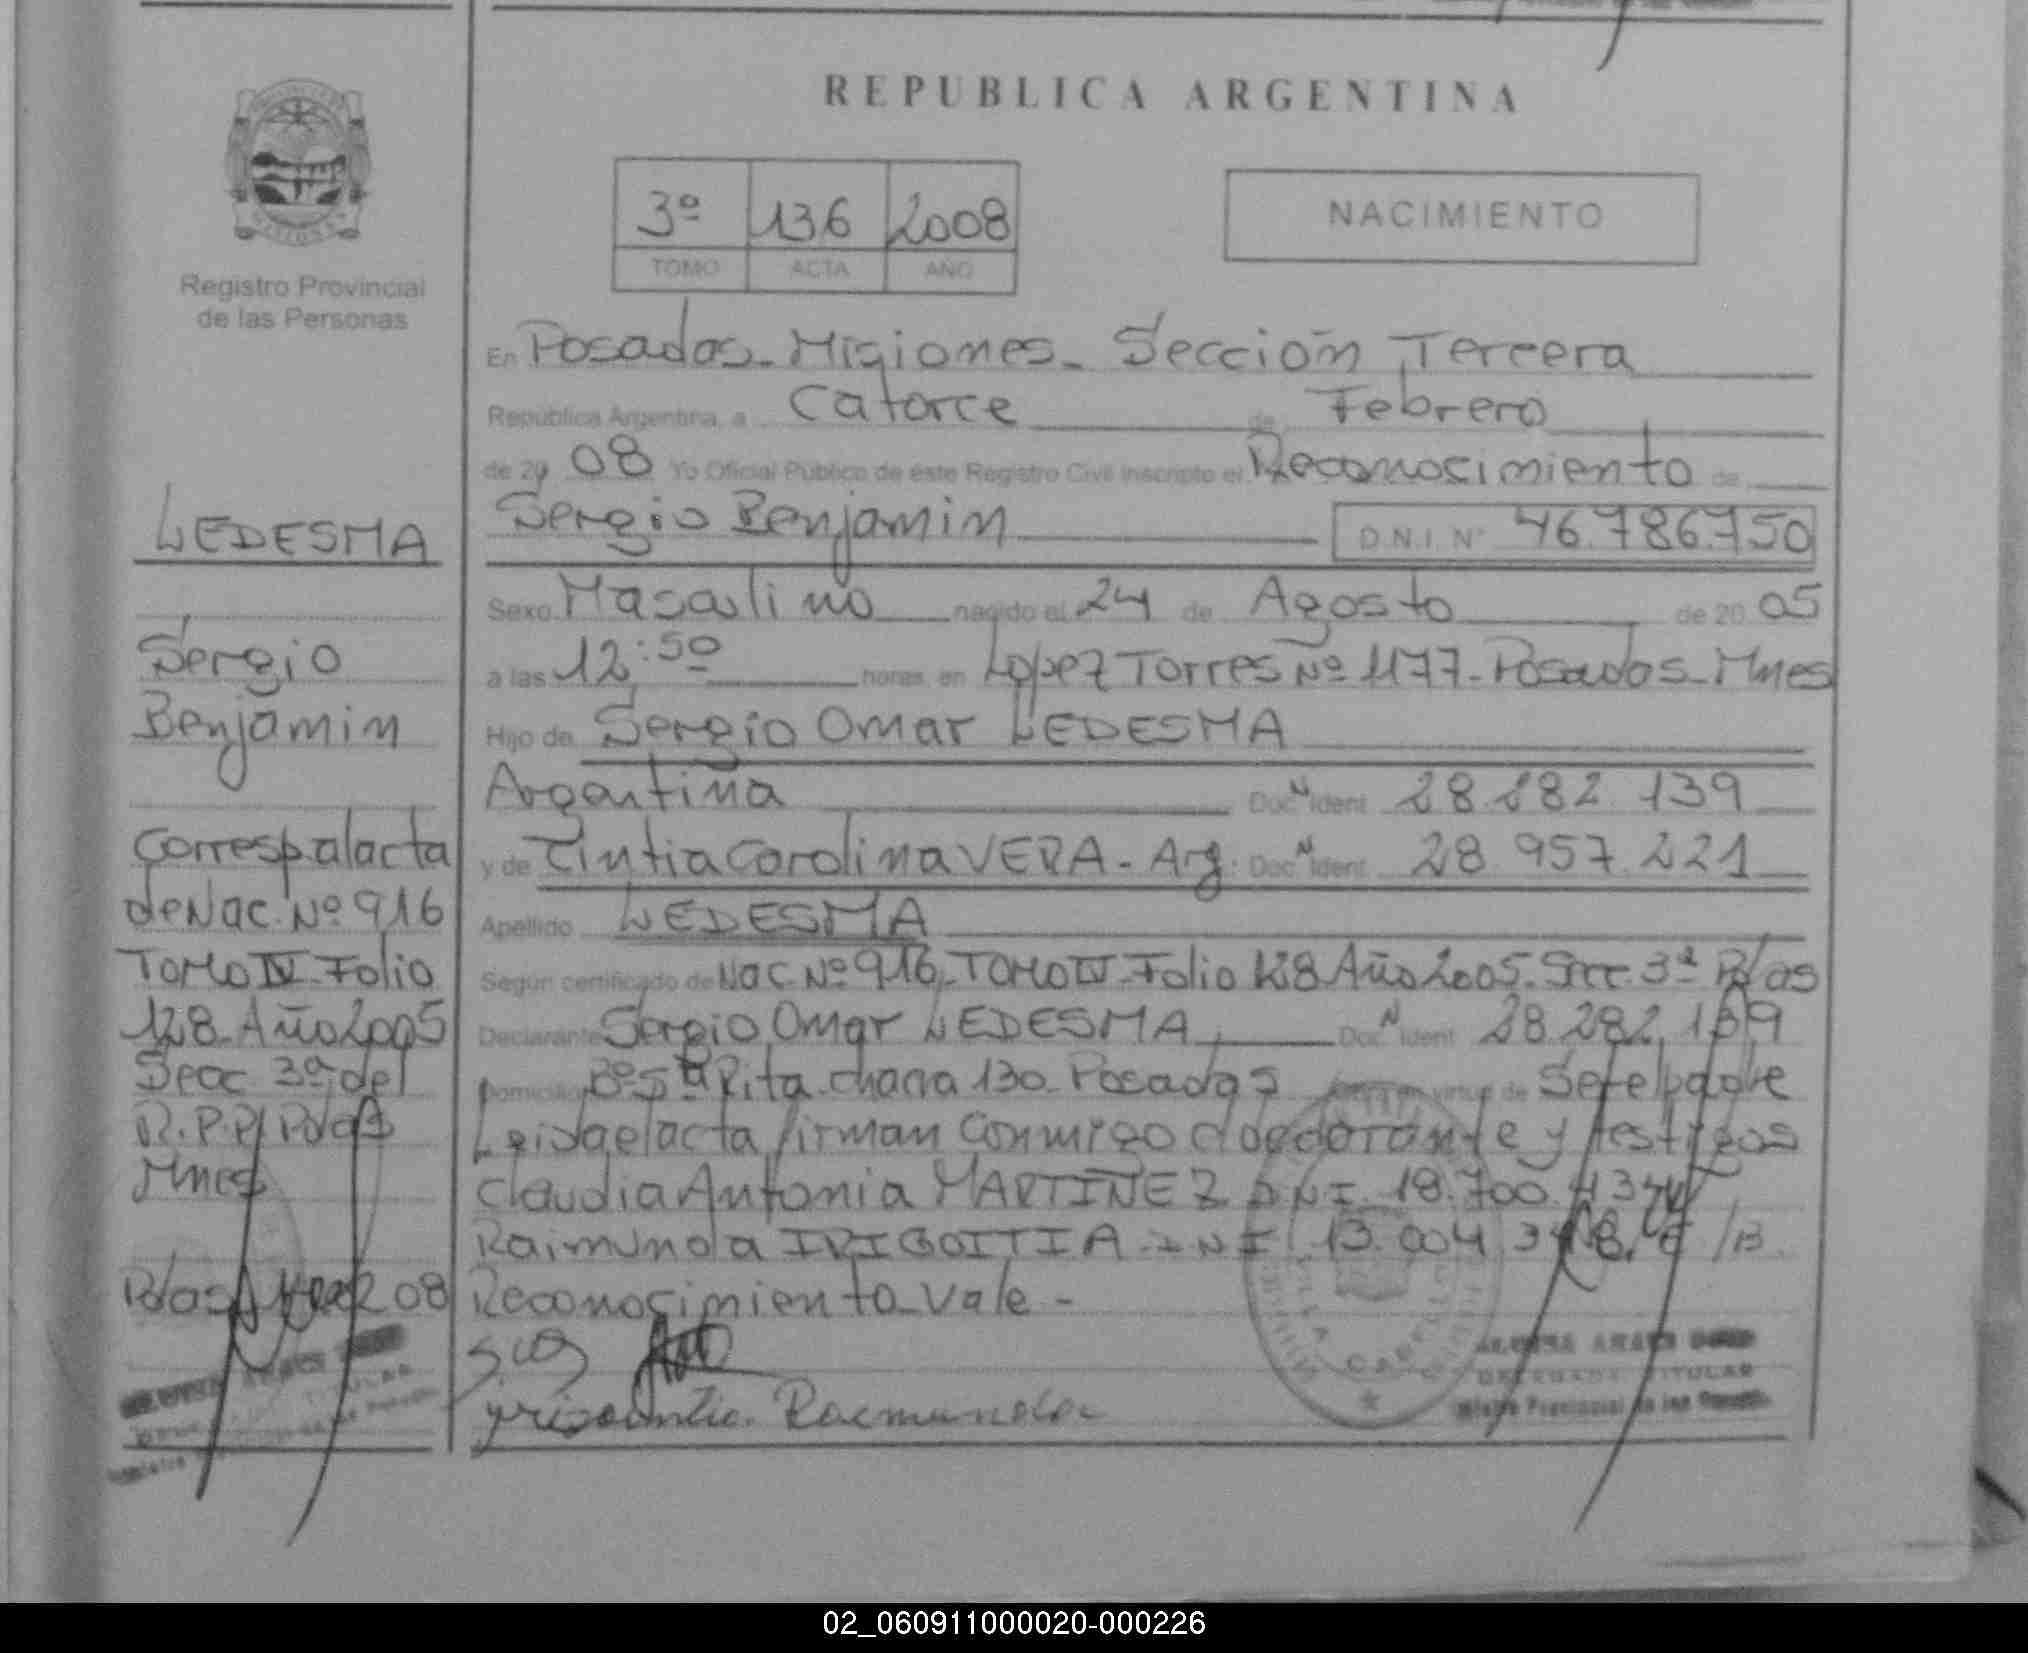 REPUBLICA ARGENTINA
3º 136 2008
TOMO ACTA AÑO
NACIMIENTO
Registro Provincial
de las Personas
LEDESMA
Sergio
Benjamin
Corresp. al acta
de Nac. Nº 916
TOMO IV - Folio
128 - Año 2005
Secc. 3ª del
R.P.P. Pdas
Mnes
Pdas 08
En Posadas - Misiones - Sección Tercera
República Argentina, a Catorce de Febrero
de 20 08 Yo Oficial Público de éste Registro Civil inscripto el Reconocimiento de
Sergio Benjamin D.N.I. Nº 46.786.750
Sexo Masculino nacido el 24 de Agosto de 20 05
a las 12:50 horas, en Lopez Torres Nº 1177 - Posadas - Mnes
Hijo de Sergio Omar LEDESMA
Argentina Doc. N Ident. 28.282.139
y de Cintia Carolina VERA - Arg. Doc. N Ident. 28.957.221
Apellido LEDESMA
Según certificado de Nac. Nº 916 - TOMO IV - Folio 128 Año 2005. Secc. 3ª Pdas
Declarante Sergio Omar LEDESMA Doc. N Ident. 28.282.139
Domicilio Bº Sta Rita - chacra 130 - Posadas virtud de Ser el padre
Leida el acta, firman conmigo declarante y testigos
Claudia Antonia MARTINEZ D.N.I. 18.700.
Raimunda IRIGOITIA - D.N.I. 13.004
Reconocimiento Vale -
Raimunda
TITULAR
DELEGADA TITULAR
Registro Provincial de las Personas
02_060911000020-000226